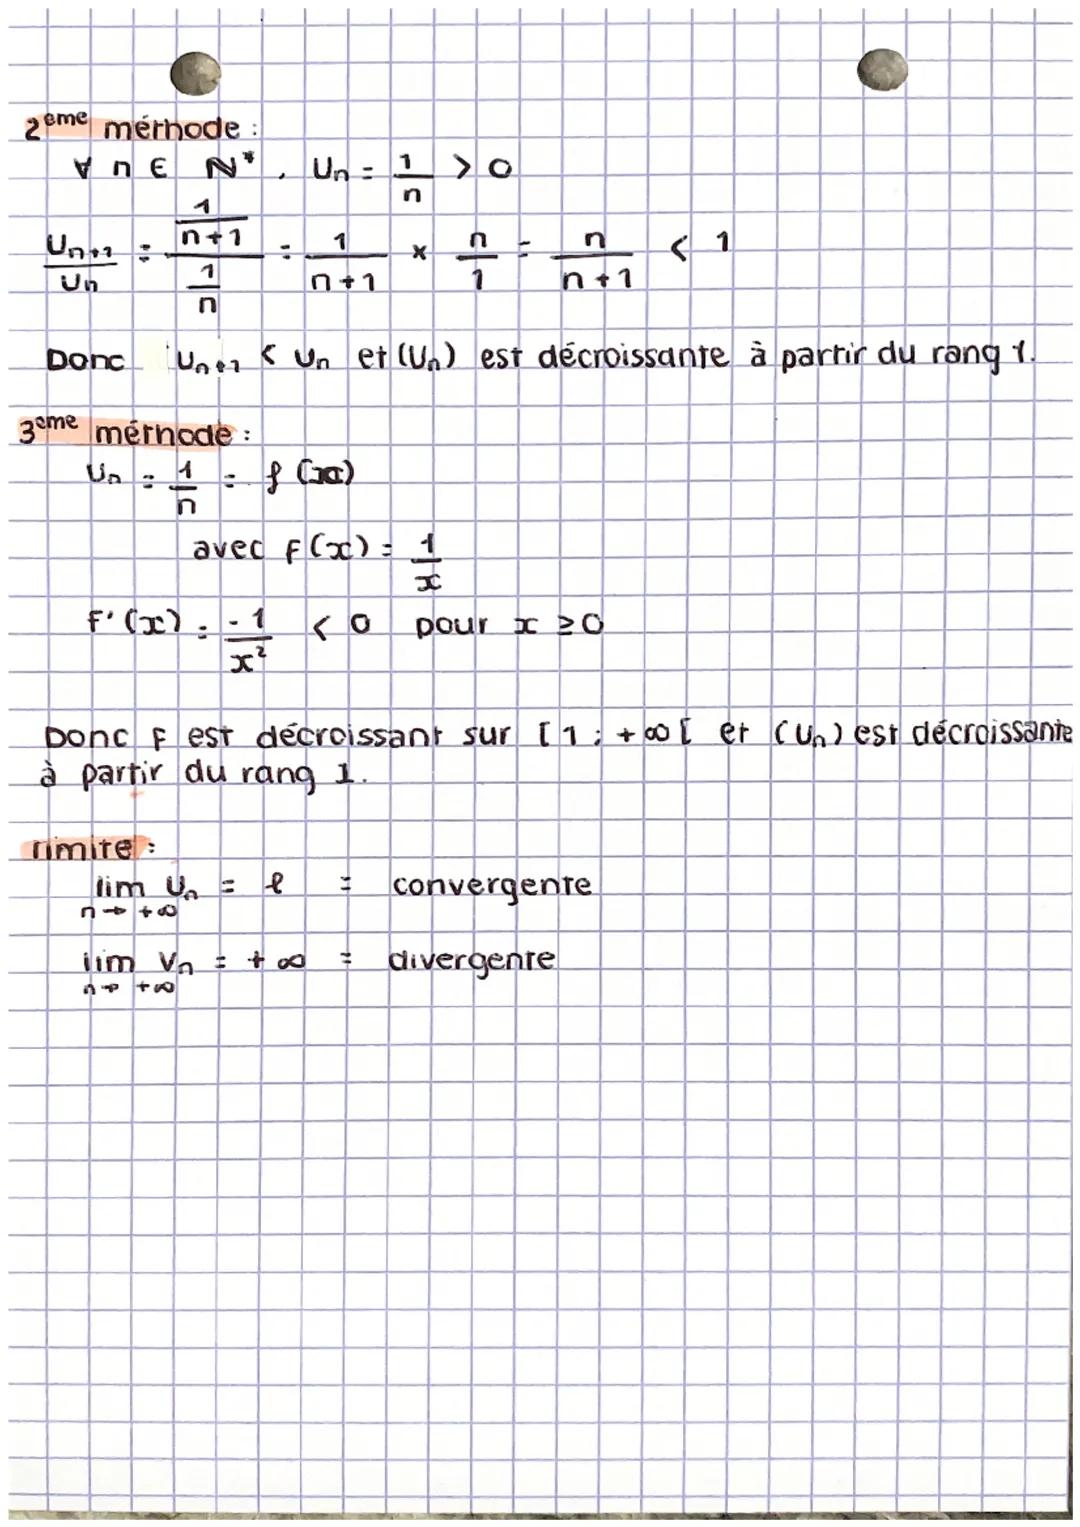 2ème méthode :
∀ n ∈ N*, Un = 1/n > 0
Un+1/Un = (1/(n+1))/(1/n) = 1/(n+1) × n/1 = n/(n+1) < 1
Donc Un+1 < Un et (Un) est décroissante à partir du rang 1.
3ème méthode :
Un = 1/n = f(x)
avec f(x) = 1/x
F'(x) = -1/x² < 0 pour x ≥ 0
Donc F est décroissant sur [1 ; +∞[ et (Un) est décroissante
à partir du rang 1.
limite :
lim Un = ℓ = convergente
n→+∞
lim Vn = +∞ = divergente
n→+∞